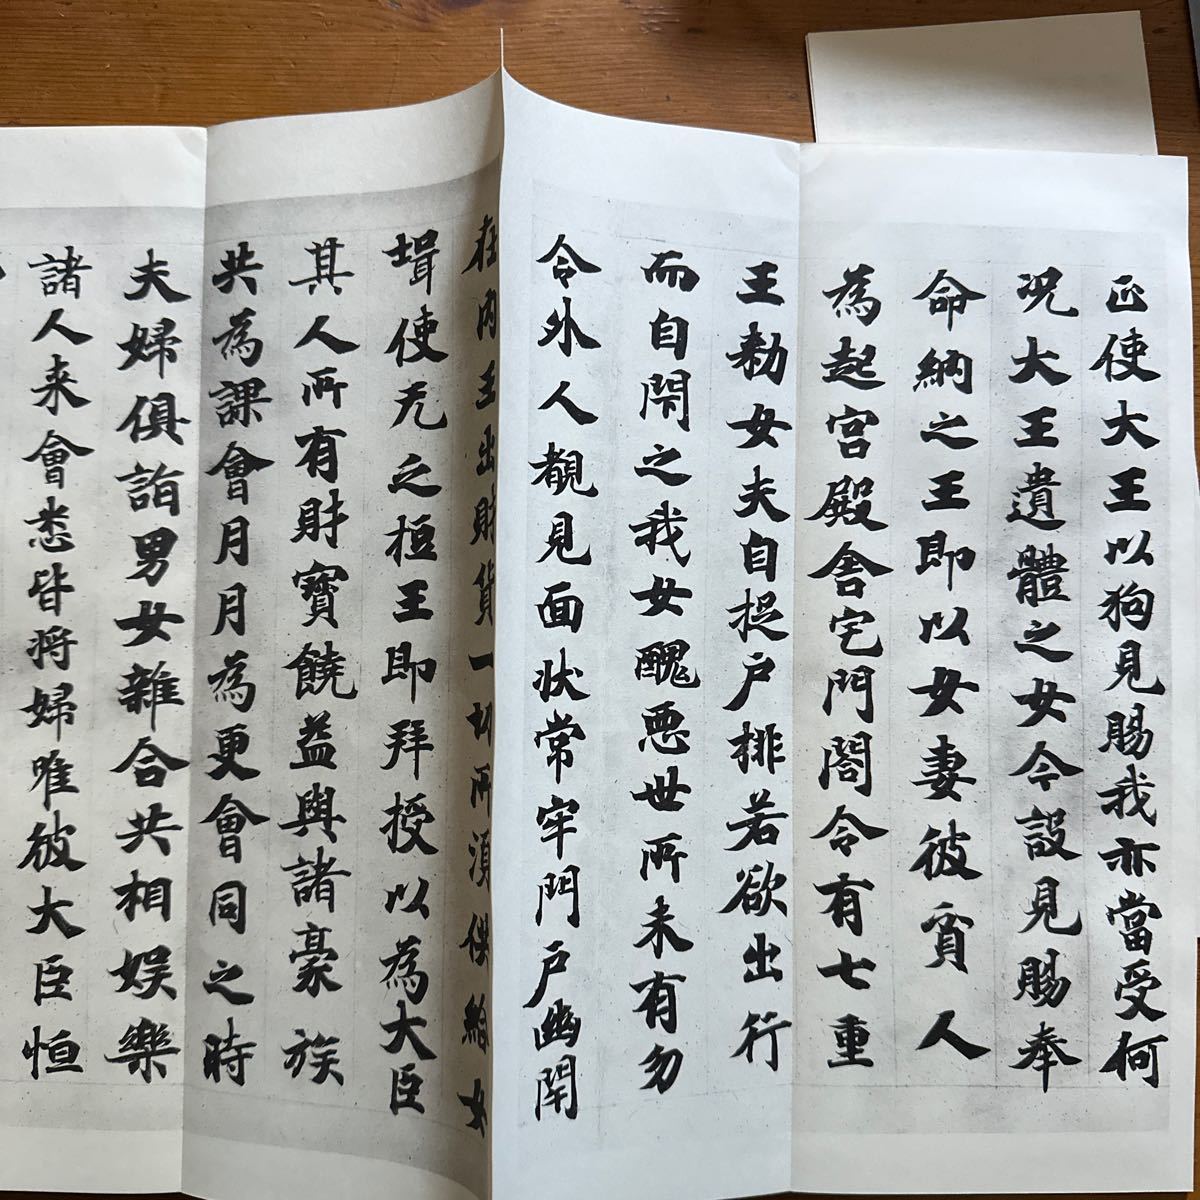 正使大王以狗見賜我亦當受何
况大王遺體之女今設見賜奉
命納之王即以女妻彼貧人
為起宮殿舍宅門閤令有七重
王勅女夫自捉户排若欲出行
而自閇之我女醜惡世所未有勿
令外人覩見面状常牢門户幽閇
在内王出財貨一切所湏供給女
壻使无之極王即拜授以為大臣
其人所有財寳饒益與諸豪族
共為課會月月為更會同之時
夫婦俱詣男女雜合共相娱樂
諸人来會悉皆将婦唯彼大臣恒